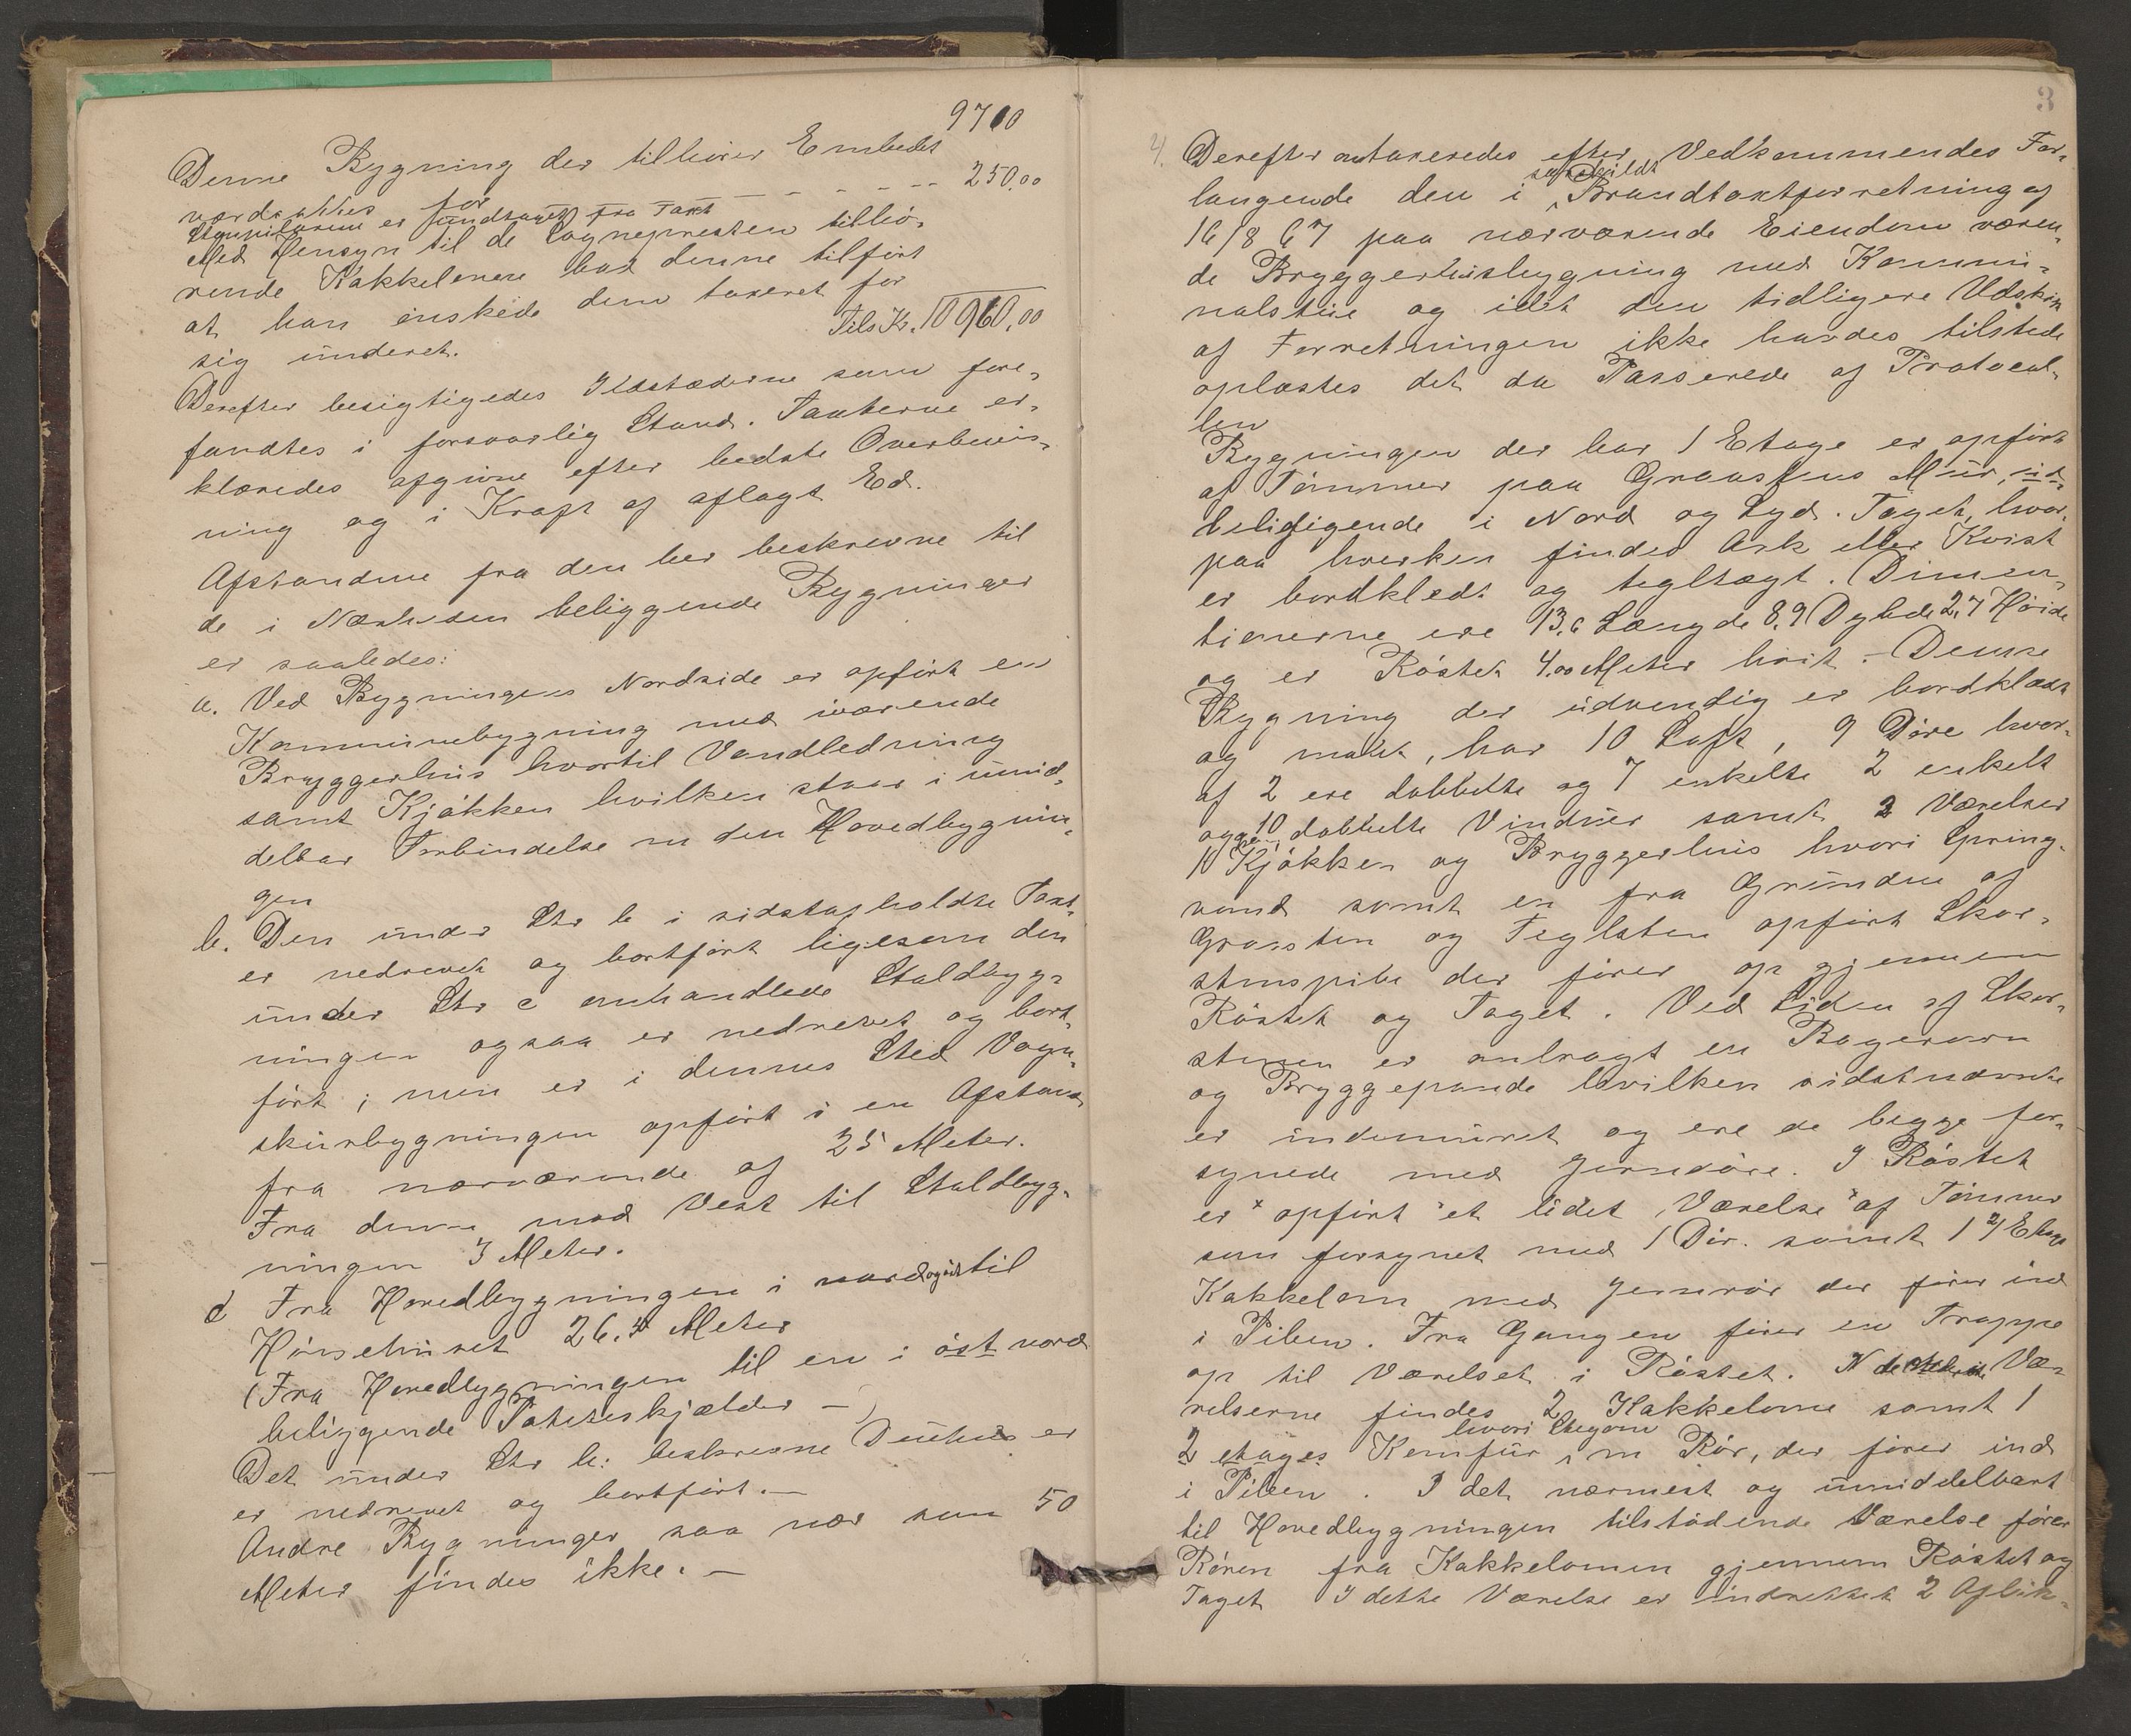 9700
Denne Bygning der tilhører Embedet
værdsættes for - - - - - - 250,00
er undtaget fra Taxt
Med Hensyn til de Sognepresten tilhø-
rende Kakkelovne bad denne tilført
at han ønskede dem taxeret for
sig underet. Tils Kr. 10960,00
Derefter besigtigedes Ildstæderne som fore-
fandtes i forsvarlig Stand. Taxterne er-
klæredes afgivne efter bedste Overbevis-
ning og i Kraft af aflagt Ed.
Afstandene fra den her beskrevne til
de i Nærheden beliggende Bygninger
er saaledes:
a. Ved Bygningens Nordside er opført en
Kommunebygning med iværende
Bryggerhus hvortil Vandledning
samt Kjøkken hvilken staar i umid-
delbar Forbindelse m den Hovedbygnin-
gen
b. Den under Ltr b i sidstafholdte Taxt
er nedrevet og bortført ligesom den
under Ltr c omhandlede Staldbyg-
ningen ogsaa er nedrevet og bort-
ført; men er i dennes Sted Vogn-
skurbygningen opført i en Afstand
fra nærværende af 25 Meter.
Fra denne mod Vest til Staldbyg-
ningen 3 Meter.
d Fra Hovedbygningen i nord og øst til
Hønsehuset 26,4 Meter
(Fra Hovedbygningen til en i øst nord
beliggende Poteteskjælder -)
Det under Ltr b: beskrevne Duehus er
er nedrevet og bortført. -
Andre Bygninger saa nær som 50
Meter findes ikke. -
3
4. Derefter omtaxeredes efter Vedkommendes For-
særskildt
langende den i Brandtaxtforretning af
16/8 67 paa nærværende Eiendom væren-
de Bryggerhusbygning med Kommu-
nalstue og idet den tidligere Udskrift
af Forretningen ikke havdes tilstede
oplæstes det da Passerede af Protocol-
len
Bygningen der har 1 Etage er opført
af Tømmer paa Graastens Mur,
beliggende i Nord og Syd. Taget, hvor-
paa hverken findes Ark eller Kvist
er bordklædt og tegltægt. Dimen-
tionerne ere 13,6 Længde 8,9 Dybde 2,7 Høide
og er Røstet 4,00 Meter høit. - Denne
Bygning der udvendig er bordklædt
og malet, har 10 Loft, 9 Døre hvor-
af 2 ere dobbelte og 7 enkelte 2 enkelt
og 10 dobbelte Vinduer samt 2 Værelser
1 Kjøkken og Bryggerhus hvori Spring-
vand samt en fra Grunden af
Graasten og Teglsten opført Skor-
stenspibe der fører op gjennem
Røstet og Taget. Ved Siden af Skor-
stenen er anbragt en Bagerovn
og Bryggepande hvilken sidstnævnte
er indemuret og ere de begge for-
synede med Jerndøre. I Røstet
er opført et lidet Værelse af Tømmer
som forsynet med 1 Dør. samt 1 2 Etage
Kakkelovn med Jernrør der fører ind
i Piben. Fra Gangen fører en Trappe
op til Værelset i Røstet. Væ-
relserne findes 2 Kakkelovne samt 1
hvori Stegovn
2 etages Komfur m Rør, der fører ind
i Piben. I det nærmest og umiddelbart
til Hovedbygningen tilstødende Værelse fører
Røren fra Kakkelovnen gjennem Røstet og
Taget I dette Værelse er indrettet 2 Afluk-